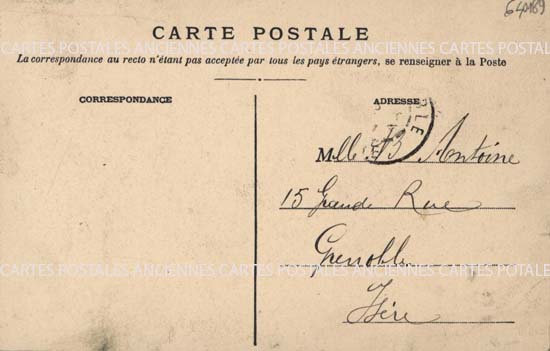 CARTE POSTALE
La correspondance au recto n'étant pas acceptée par tous les pays étrangers, se renseigner à la Poste
CARTES POSTALES ANCIENNES CARTES POSTALES ANCIENNES CARTES POSTALES
CORRESPONDANCE
ADRESSE
Mlle B Antoine
15 Grande Rue
Grenoble
Isère
CARTES POSTALES ANCIENNES CARTES POSTALES ANCIENNES CARTES POSTALES